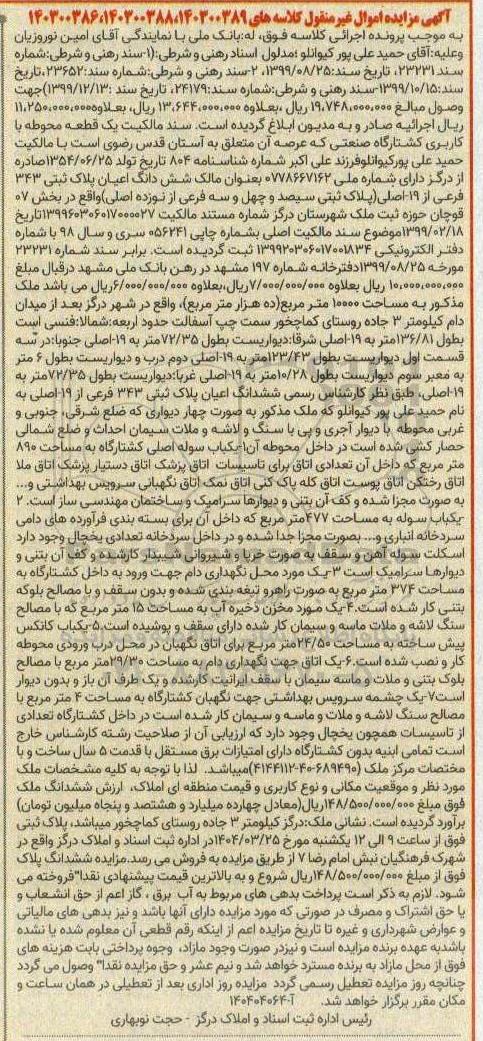 آگهی مزایده اموال غیر منقول کلاسه های ۱۴۰۳۰۰۳۸۶،۱۴۰۳۰۰۳۸۸،۱۴۰۳۰۰۳۸۹
به موجب پرونده اجرائی کلاسه فوق، له:بانک ملی با نمایندگی آقای امین نوروزیان
وعلیه:آقای حمید علی پور کیوانلو ؛مدلول اسناد رهنی و شرطی:(۱-سند رهنی و شرطی:شماره
سند:۲۳۲۳۱، تاریخ سند:۱۳۹۹/۰۸/۲۵، ۲-سند رهنی و شرطی:شماره سند:۲۳۶۵۲،تاریخ
سند:۱۳۹۹/۱۰/۱۵-سند رهنی و شرطی:شماره سند:۲۴۱۷۹، تاریخ سند :۱۳۹۹/۱۲/۱۳)جهت
وصول مبالغ ۱۹,۷۴۸,۰۰۰,۰۰۰ ریال ،بعلاوه ۱۳,۶۴۴,۰۰۰,۰۰۰ ریال، بعلاوه۱۱,۲۵۰,۰۰۰,۰۰۰
ریال اجرائیه صادر و به مدیون ابلاغ گردیده است. سند مالکیت یک قطعه محوطه با
کاربری کشتارگاه صنعتی که عرصه آن متعلق به آستان قدس رضوی است با مالکیت
حمید علی پورکیوانلوفرزند علی اکبر شماره شناسنامه ۸۰۴ تاریخ تولد ۱۳۵۴/۰۶/۲۵صادره
از درگز دارای شماره ملی ۰۷۷۸۶۶۷۱۶۲ بعنوان مالک شش دانگ اعیان پلاک ثبتی ۳۴۳
فرعی از ۱۹-اصلی(پلاک ثبتی سیصد و چهل و سه فرعی از نوزده اصلی)واقع در بخش ۰۷
قوچان حوزه ثبت ملک شهرستان درگز شماره مستند مالکیت ۱۳۹۹۶۰۳۰۶۰۱۷۰۰۰۰۲۷تاریخ
۱۳۹۹/۰۲/۱۸موضوع سند مالکیت اصلی بشماره چاپی ۰۵۶۲۴۱ سری و سال ۹۸ با شماره
دفتر الکترونیکی ۱۳۹۹۲۰۳۰۶۰۱۷۰۰۱۸۳۴ ثبت گردیده است. برابر سند شماره ۲۳۲۳۱
مورخه ۱۳۹۹/۰۸/۲۵دفترخانه شماره ۱۹۷ مشهد در رهن بانک ملی مشهد درقبال مبلغ
۱۰,۰۰۰,۰۰۰,۰۰۰ ریال بعلاوه ۷/۰۰۰/۰۰۰/۰۰۰ریال،بعلاوه ۶/۰۰۰/۰۰۰/۰۰۰ریال می باشد ملک
مذکور به مساحت ۱۰۰۰۰ متر مربع(ده هزار متر مربع)، واقع در شهر درگز بعد از میدان
دام کیلومتر ۳ جاده روستای کماچخور سمت چپ آسفالت حدود اربعه:شمالا:فنسی است
بطول ۱۳۶/۸۱متر به ۱۹-اصلی شرقا:دیواریست بطول ۷۲/۳۵متر به ۱۹-اصلی جنوبا:در سه
قسمت اول دیواریست بطول ۱۲۳/۴۳متر به ۱۹-اصلی دوم درب و دیواریست بطول ۶ متر
به معبر سوم دیواریست بطول ۱۰/۲۸متر به ۱۹-اصلی غربا:دیواریست بطول ۷۲/۳۵متر به
۱۹-اصلی، طبق نظر کارشناس رسمی ششدانگ اعیان پلاک ثبتی ۳۴۳ فرعی از ۱۹-اصلی به
نام حمید علی پور کیوانلو که ملک مذکور به صورت چهار دیواری که ضلع شرقی، جنوبی و
غربی محوطه با دیوار آجری و پی با سنگ و لاشه و ملات سیمان احداث و ضلع شمالی
حصار کشی شده است در داخل محوطه آن۱-یکباب سوله اصلی کشتارگاه به مساحت ۸۹۰
متر مربع که داخل آن تعدادی اتاق برای تاسیسات اتاق پزشک اتاق دستیار پزشک اتاق ملا
اتاق رختکن اتاق پوست اتاق کله پاک کنی اتاق نمک اتاق نگهبانی سرویس بهداشتی و...
به صورت مجزا شده و کف آن بتنی و دیوارها سرامیک و ساختمان مهندسی ساز است. ۲
-یکباب سوله به مساحت ۴۷۷متر مربع که داخل آن برای بسته بندی فرآورده های دامی
سردخانه انباری و... بصورت مجزا جدا شده و در داخل سردخانه تعدادی یخچال وجود دارد
اسکلت سوله آهن و سقف به صورت خرپا و شیروانی شیبدار کارشده و کف آن بتنی و
دیوارها سرامیک است ۳-یک مورد محل نگهداری دام جهت ورود به داخل کشتارگاه به
مساحت ۳۷۴ متر مربع به صورت راهرو تیغه بندی شده و بدون سقف و با مصالح بلوکه
بتنی کار شده است.۴-یک مورد مخزن ذخیره آب به مساحت ۱۵ متر مربع که با مصالح
سنگ لاشه و ملات ماسه و سیمان کار شده دارای سقف و پوشیده است.۵-یکباب کانکس
پیش ساخته به مساحت ۲۴/۵۰متر مربع برای اتاق نگهبان در محل درب ورودی محوطه
کار و نصب شده است.۶-یک اتاق جهت نگهداری دام به مساحت ۲۹/۳۰متر مربع با مصالح
بلوک بتنی و ملات و ماسه سیمان با سقف ایرانیت کارشده و یک طرف آن باز و بدون دیوار
است۷-یک چشمه سرویس بهداشتی جهت نگهبان کشتارگاه به مساحت ۴ متر مربع با
مصالح سنگ لاشه و ملات و ماسه و سیمان کار شده است در داخل کشتارگاه تعدادی
از تاسیسات همچون یخچال وجود دارد که ارزیابی آن از صلاحیت رشته کارشناس خارج
است تمامی ابنیه بدون کشتارگاه دارای امتیازات برق مستقل با قدمت ۵ سال ساخت و با
مختصات مرکز ملک (۶۸۹۴۹۰-۴۱۴۴۱۱۲-۴۰)میباشد. لذا با توجه به کلیه مشخصات ملک
مورد نظر و موقعیت مکانی و نوع کاربری و قیمت منطقه ای املاک، ارزش ششدانگ ملک
فوق مبلغ ۱۴۸/۵۰۰/۰۰۰/۰۰۰ریال(معادل چهارده میلیارد و هشتصد و پنجاه میلیون تومان)
برآورد گردیده است. نشانی ملک:درگز کیلومتر ۳ جاده روستای کماچخور میباشد، پلاک ثبتی
فوق از ساعت ۹ الی ۱۲ یکشنبه مورخ ۱۴۰۴/۰۳/۲۵در اداره ثبت اسناد و املاک درگز واقع در
شهرک فرهنگیان نبش امام رضا ۷ از طریق مزایده به فروش می رسد.مزایده ششدانگ پلاک
فوق از مبلغ ۱۴۸/۵۰۰/۰۰۰/۰۰۰ریال شروع و به بالاترین قیمت پیشنهادی نقدا"فروخته می
شود. لازم به ذکر است پرداخت بدهی های مربوط به آب برق ، گاز اعم از حق انشعاب و
یا حق اشتراک و مصرف در صورتی که مورد مزایده دارای آنها باشد و نیز بدهی های مالیاتی
و عوارض شهرداری و غیره تا تاریخ مزایده اعم از اینکه رقم قطعی آن معلوم شده یا نشده
باشدبه عهده برنده مزایده است و نیزدر صورت وجود مازاد، وجوه پرداختی بابت هزینه های
فوق از محل مازاد به برنده مسترد خواهد شد و نیم عشر و حق مزایده نقدا" وصول می گردد
چنانچه روز مزایده تعطیل رسمی گردد مزایده روز اداری بعد از تعطیلی در همان ساعت و
مکان مقرر برگزار خواهد شد. آ-۱۴۰۴۰۴۰۶۴
رئیس اداره ثبت اسناد و املاک درگز - حجت نوبهاری